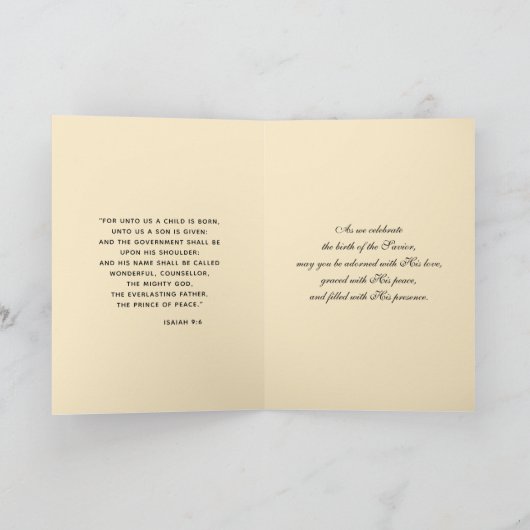 "FOR UNTO US A CHILD IS BORN,
UNTO US A SON IS GIVEN:
AND THE GOVERNMENT SHALL BE
UPON HIS SHOULDER:
AND HIS NAME SHALL BE CALLED
WONDERFUL, COUNSELLOR,
THE MIGHTY GOD,
THE EVERLASTING FATHER,
THE PRINCE OF PEACE."
ISAIAH 9:6
As we celebrate
the birth of the Savior,
may you be adorned with His love,
graced with His peace,
and filled with His presence.